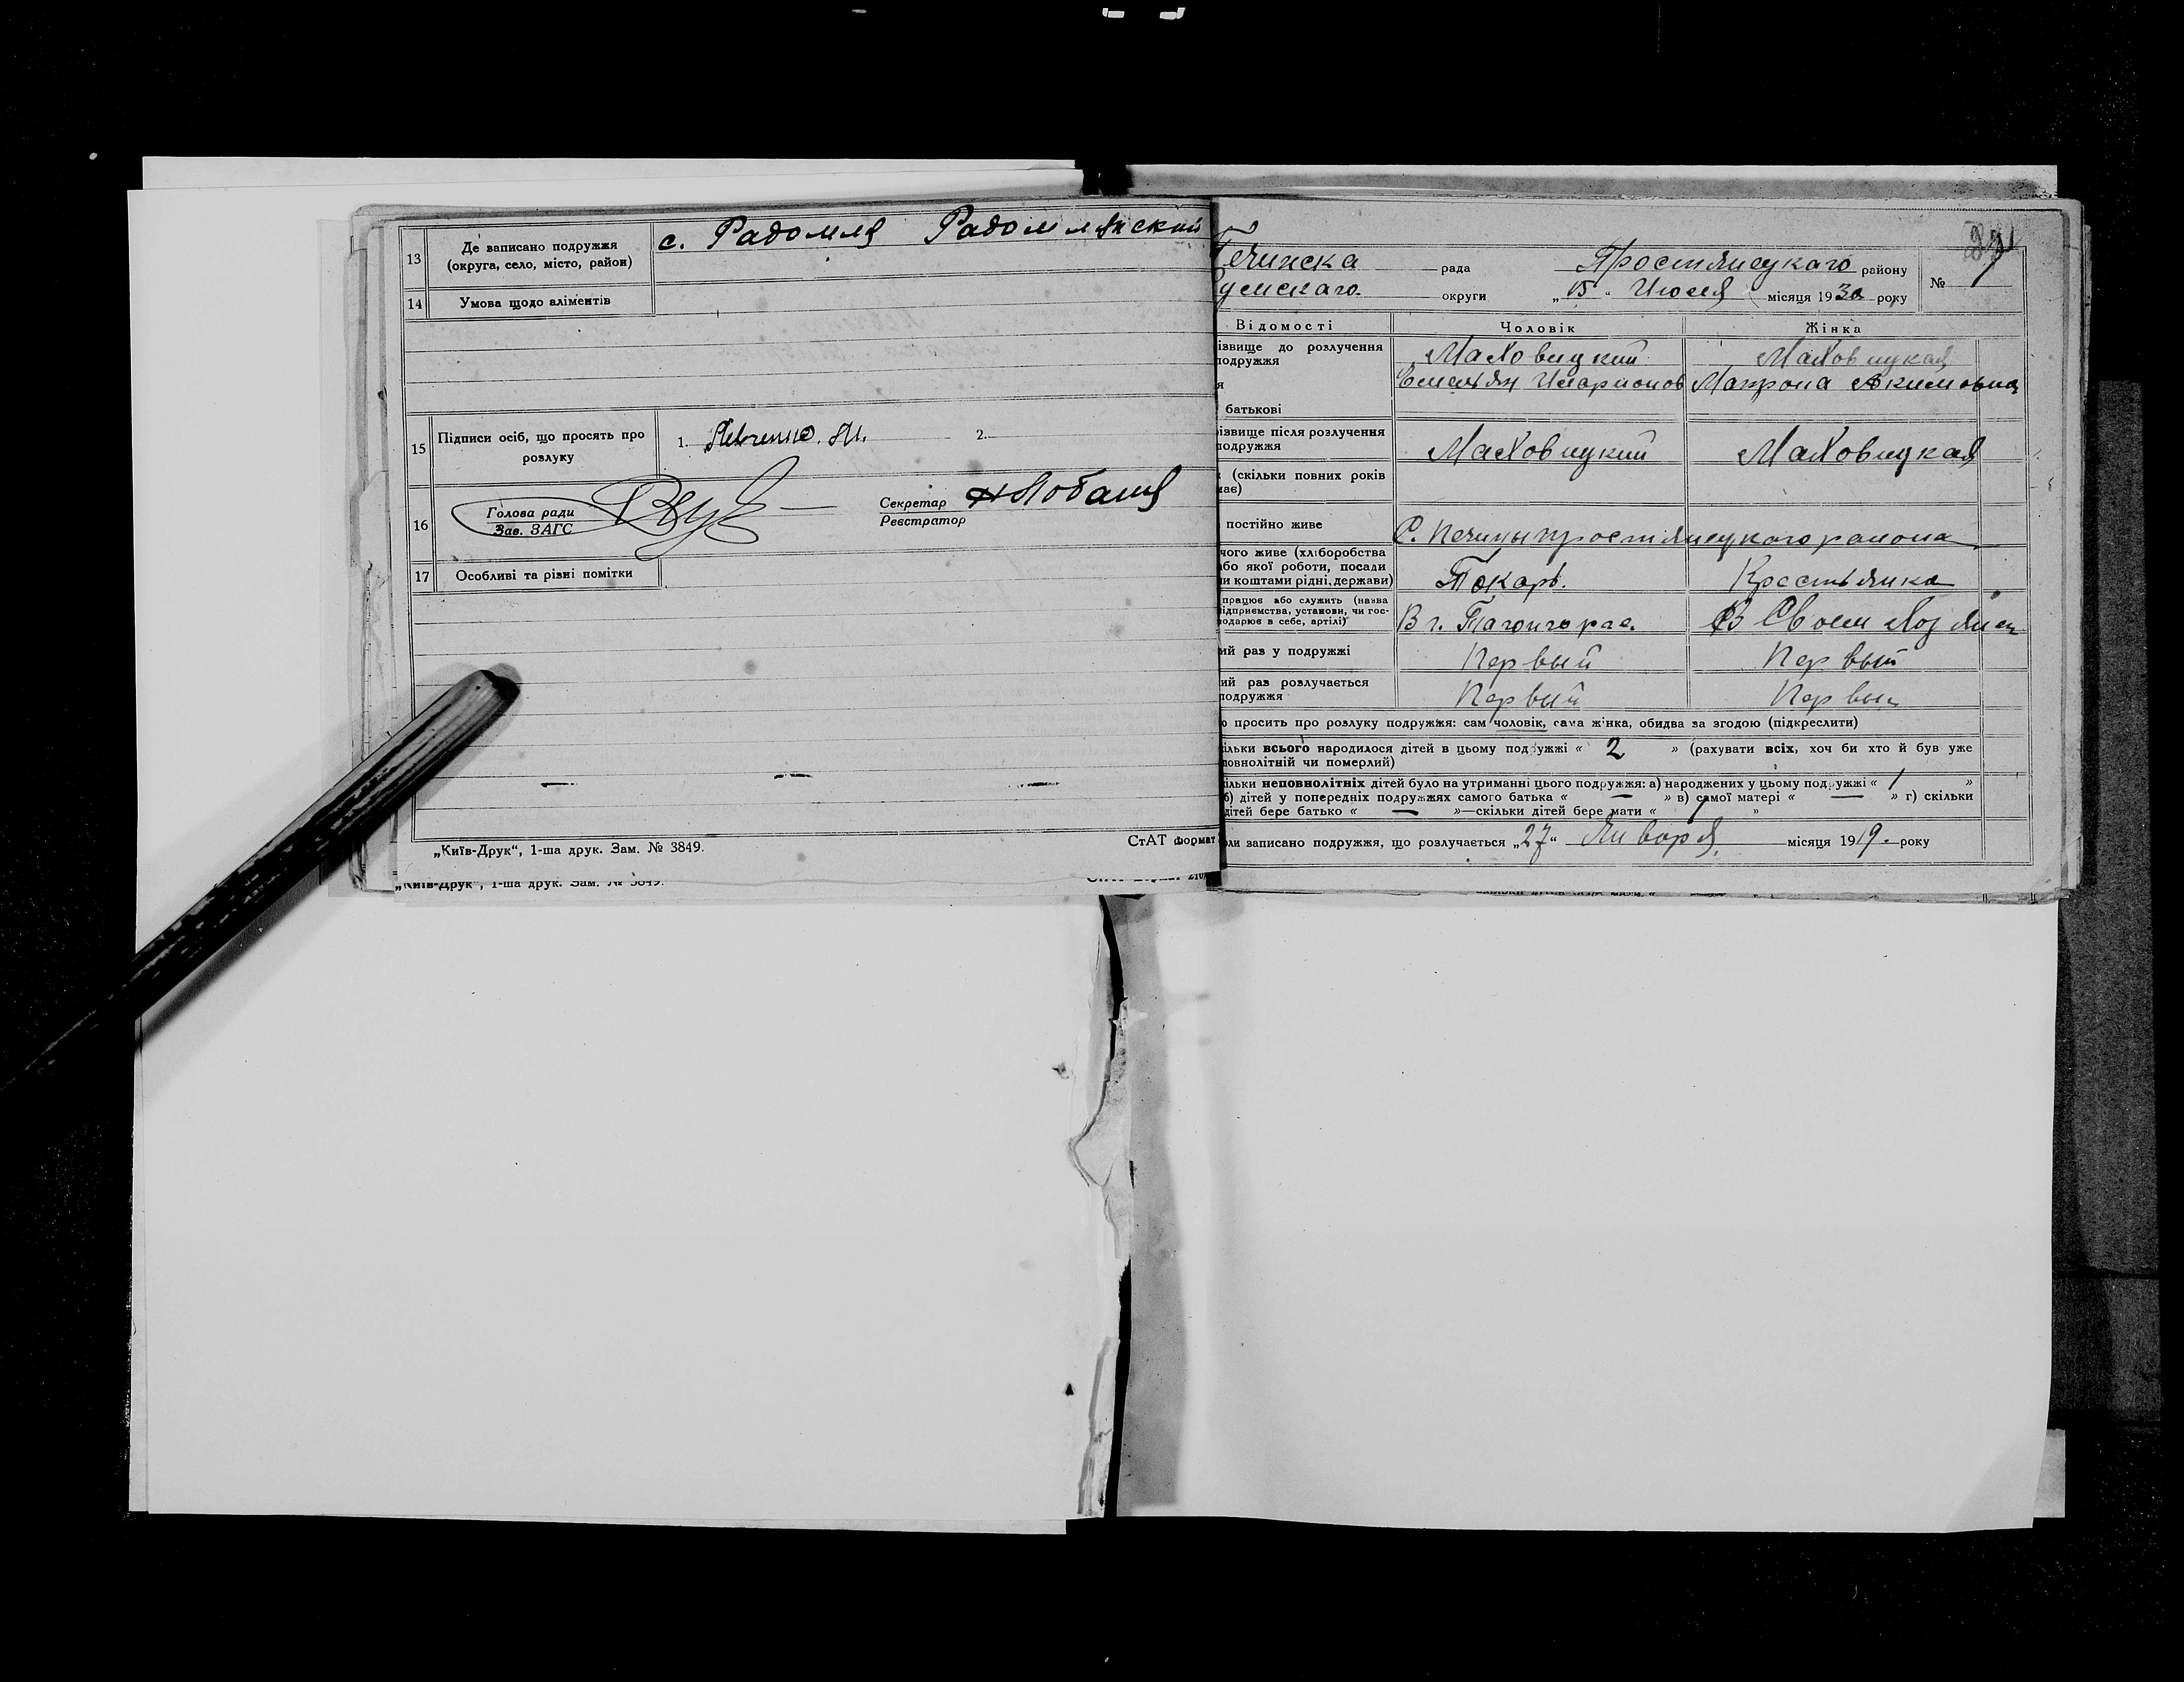 13 Де записано подружжя (округа, село, місто, район) с. Радомля Радомлянский
14 Умова щодо аліментів
15 Підписи осіб, що просять про розлуку 1. 2.
16 Голова ради
Зав. ЗАГС
Секретар
Реєстратор
17 Особливі та різні помітки
„Київ-Друк“, 1-ша друк. Зам. № 3849. СтАТ формат
„Київ-Друк“, 1-ша друк. Зам. № 3849.
рада Простянецкаго району
округи „15“ Июля місяця 1930 року
№ 1
Відомості Чоловік Жінка
ізвище до розлучення
подружжя
Маховицкий Маховицкая
Емельян Иларионов Макрона Акимовна
батькові
ізвище після розлучення
подружжя
Маховицкий Маховицкая
(скільки повних років
має)
постійно живе С. Печины простянецкого района
чого живе (хліборобства
або якої роботи, посади
чи коштами рідні, держави)
Токарь. Крестьянка
працює або служить (назва
підприємства, установи, чи гос-
подарює в себе, артілі)
В г. Тагонгорае. В Своем
ий раз у подружжі Первый Первый
ий раз розлучається
подружжя
Первый Первый
о просить про розлуку подружжя: сам чоловік, сама жінка, обидва за згодою (підкреслити)
ільки всього народилося дітей в цьому подружжі « 2 » (рахувати всіх, хоч би хто й був уже
повнолітній чи померлий)
ільки неповнолітніх дітей було на утриманні цього подружжя: а) народжених у цьому подружжі « 1 »
б) дітей у попередніх подружжях самого батька « — » в) самої матері « — » г) скільки
дітей бере батько « — »—скільки дітей бере мати « 1 »
оли записано подружжя, що розлучається „27“ Января місяця 1919. року